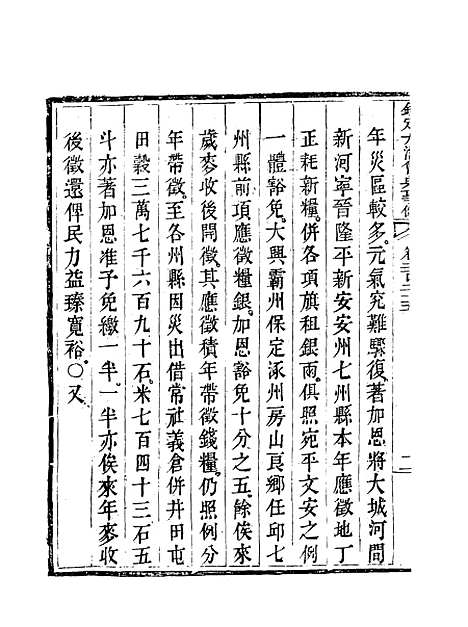 年災區較多。元氣究難驟復。著加恩將大城河間
新河寧晉隆平新安安州七州縣本年應徵地丁
正耗新糧。併各項旗租銀兩。俱照宛平文安之例
一體豁免。大興霸州保定涿州房山良鄉任邱七
州縣前項應徵糧銀。加恩豁免十分之五。餘俟來
歲麥收後開徵。其應徵積年帶徵錢糧。仍照例分
年帶徵。至各州縣因災出借常社義倉併井田屯
田穀三萬七千六百九十石。米七百四十三石五
斗亦著加恩准予免繳一半。一半亦俟來年麥收
後徵還俾民力益臻寬裕。○又